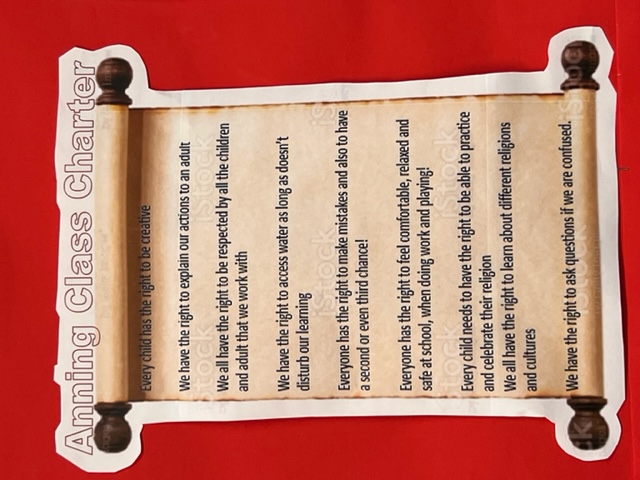 Anning Class Charter
Every child has the right to be creative
We have the right to explain our actions to an adult
We all have the right to be respected by all the children
and adult that we work with
We have the right to access water as long as doesn't
disturb our learning
Everyone has the right to make mistakes and also to have
a second or even third chance!
Everyone has the right to feel comfortable, relaxed and
safe at school, when doing work and playing!
Every child needs to have the right to be able to practice
and celebrate their religion
We all have the right to learn about different religions
and cultures
We have the right to ask questions if we are confused.
iStock
iStock
iStock
iStock